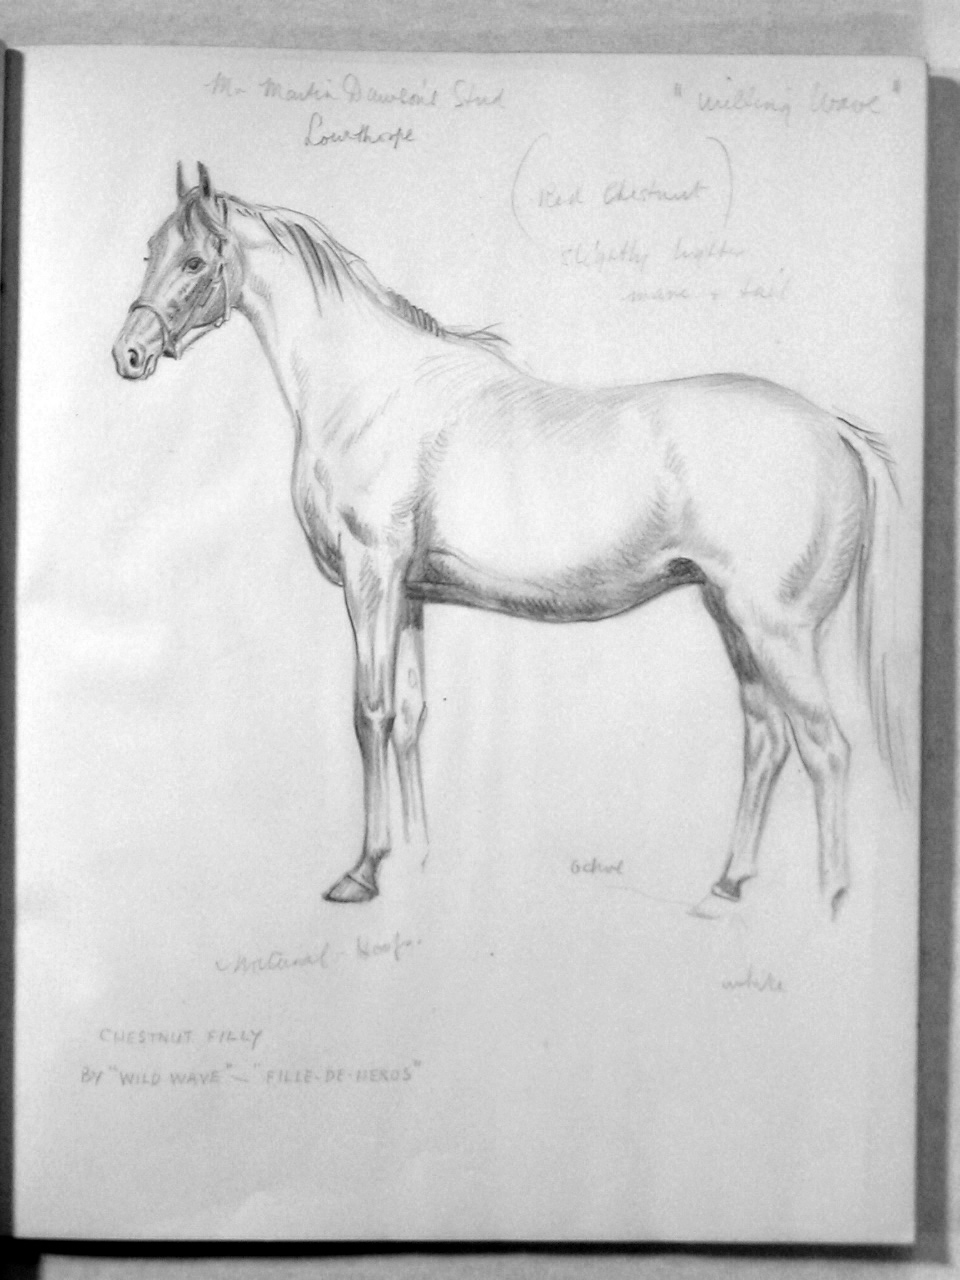 Mr Martin Dawson's Stud
Lowthorpe
"Willing Wave"
(Red Chestnut)
slightly lighter
mane + tail
ochre
Natural - Hoofs.
white
CHESTNUT FILLY
BY "WILD WAVE" - "FILLE-DE-HEROS"